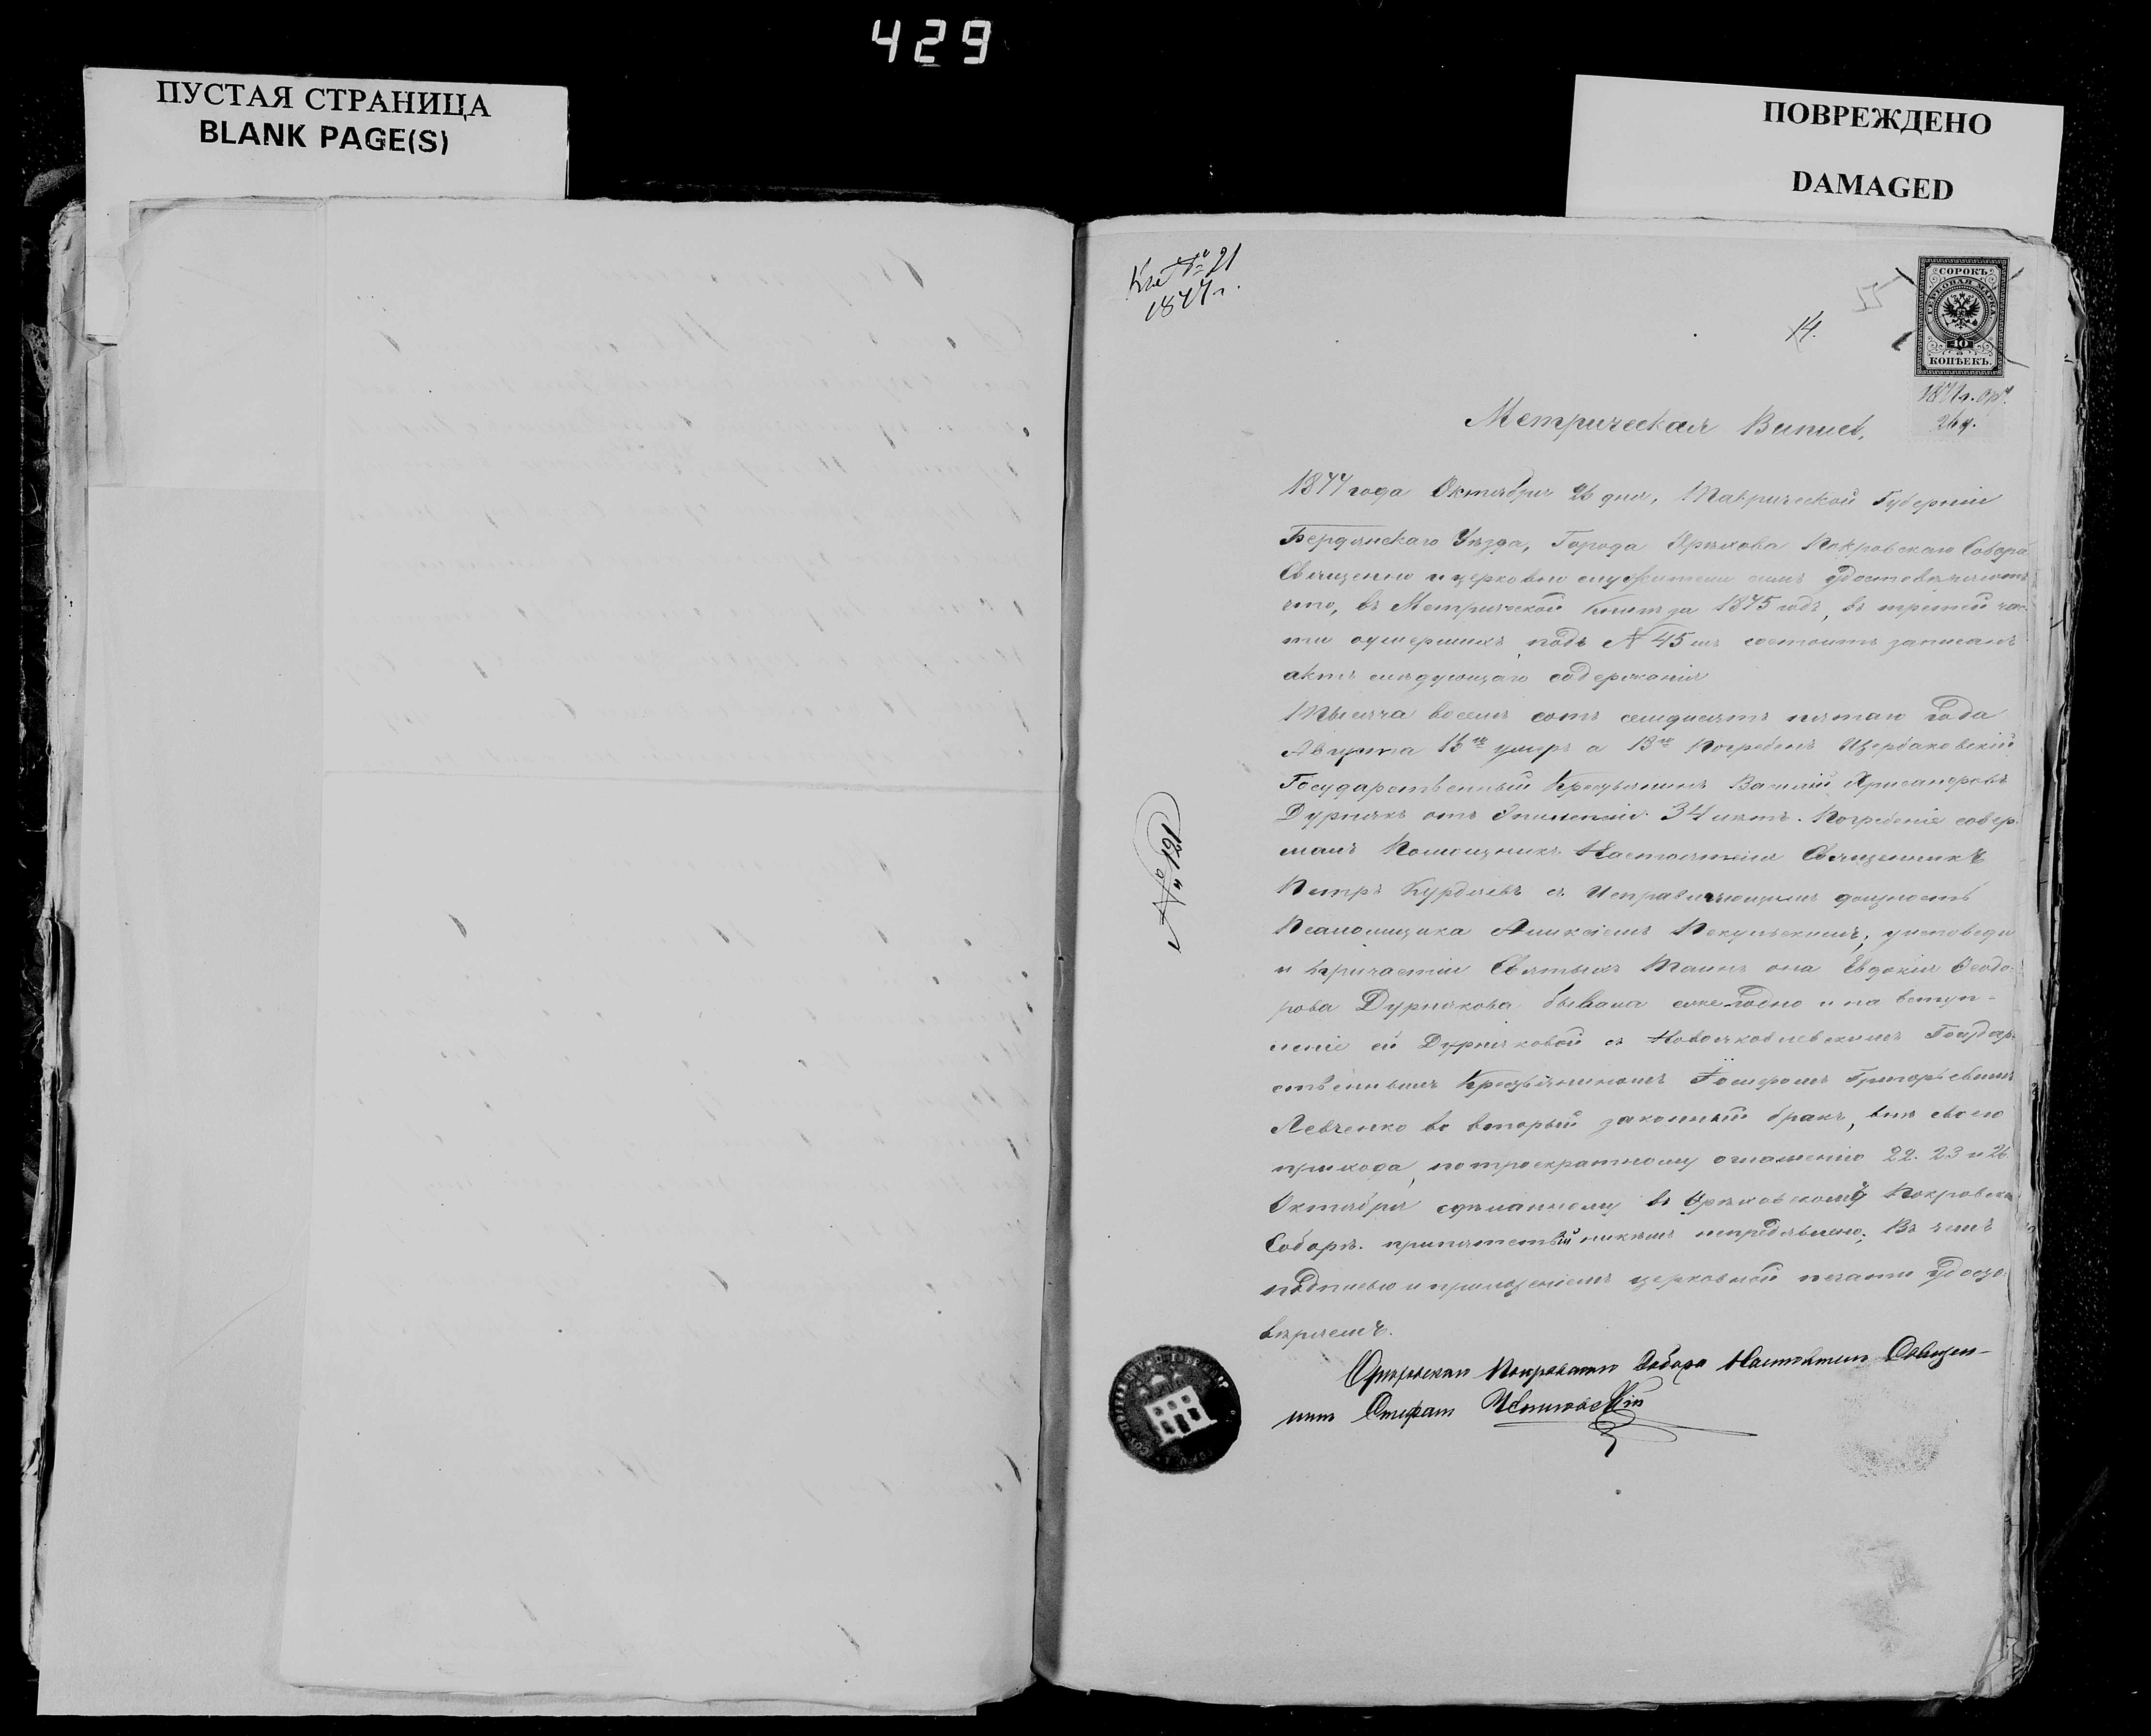 429
ПУСТАЯ СТРАНИЦА
BLANK PAGE(S)
ПОВРЕЖДЕНО
DAMAGED
1877 г.
14.
СОРОКЪ
ГЕРБОВАЯ МАРКА
40
КОПѢЕКЪ.
26 д.
Метрическая Випись,
1877 года Октября 26 дня, Таврической Губерніи
Бердянскаго Уѣзда, Города Орѣхова Покровскаго Собора
Священно и церковно служители симъ удостовѣряютъ
что, въ Метрической Книгѣ за 1875 годъ, въ третей час-
ти оумершихъ подъ № 45 мъ состоитъ записанъ
актъ слѣдующаго содержанія
Тысяча восемь сотъ семдисятъ пятаго года
Августа умеръ а 13го Погребенъ Щербаковскій
Государственный Крестьянинъ Васілій Хрисанфовъ
Дурнякъ отъ 34 лѣтъ. Погребеніе совер-
шалъ Помощникъ Настоятеля Священникъ
Петръ съ Исправляющимъ должность
Псаломщика уисповеди
и Причастіи Святыхъ Таинъ она Евдокія Ѳеодо-
рова Дурнякова бывала ежегодно и на вступ-
леніе ей Дурняковой съ Новояковлевскимъ Государ-
ственнымъ Крестьяниномъ Іосифомъ Григорьевымъ
Левченко во вторый законный бракъ, внѣ своего
прихода, по троекратному оглашенію 22. 23 и 26
Октября сдѣланному въ Орѣховскомъ Покровском
Соборѣ. препятствій никѣмъ непредъявлено; Въ чемъ
подписью и приложеніемъ церковной печати удосто-
вѣряемъ.
Орѣховскаго Покровскаго Собора Настоятель Священ-
никъ Стефанъ
№ 121